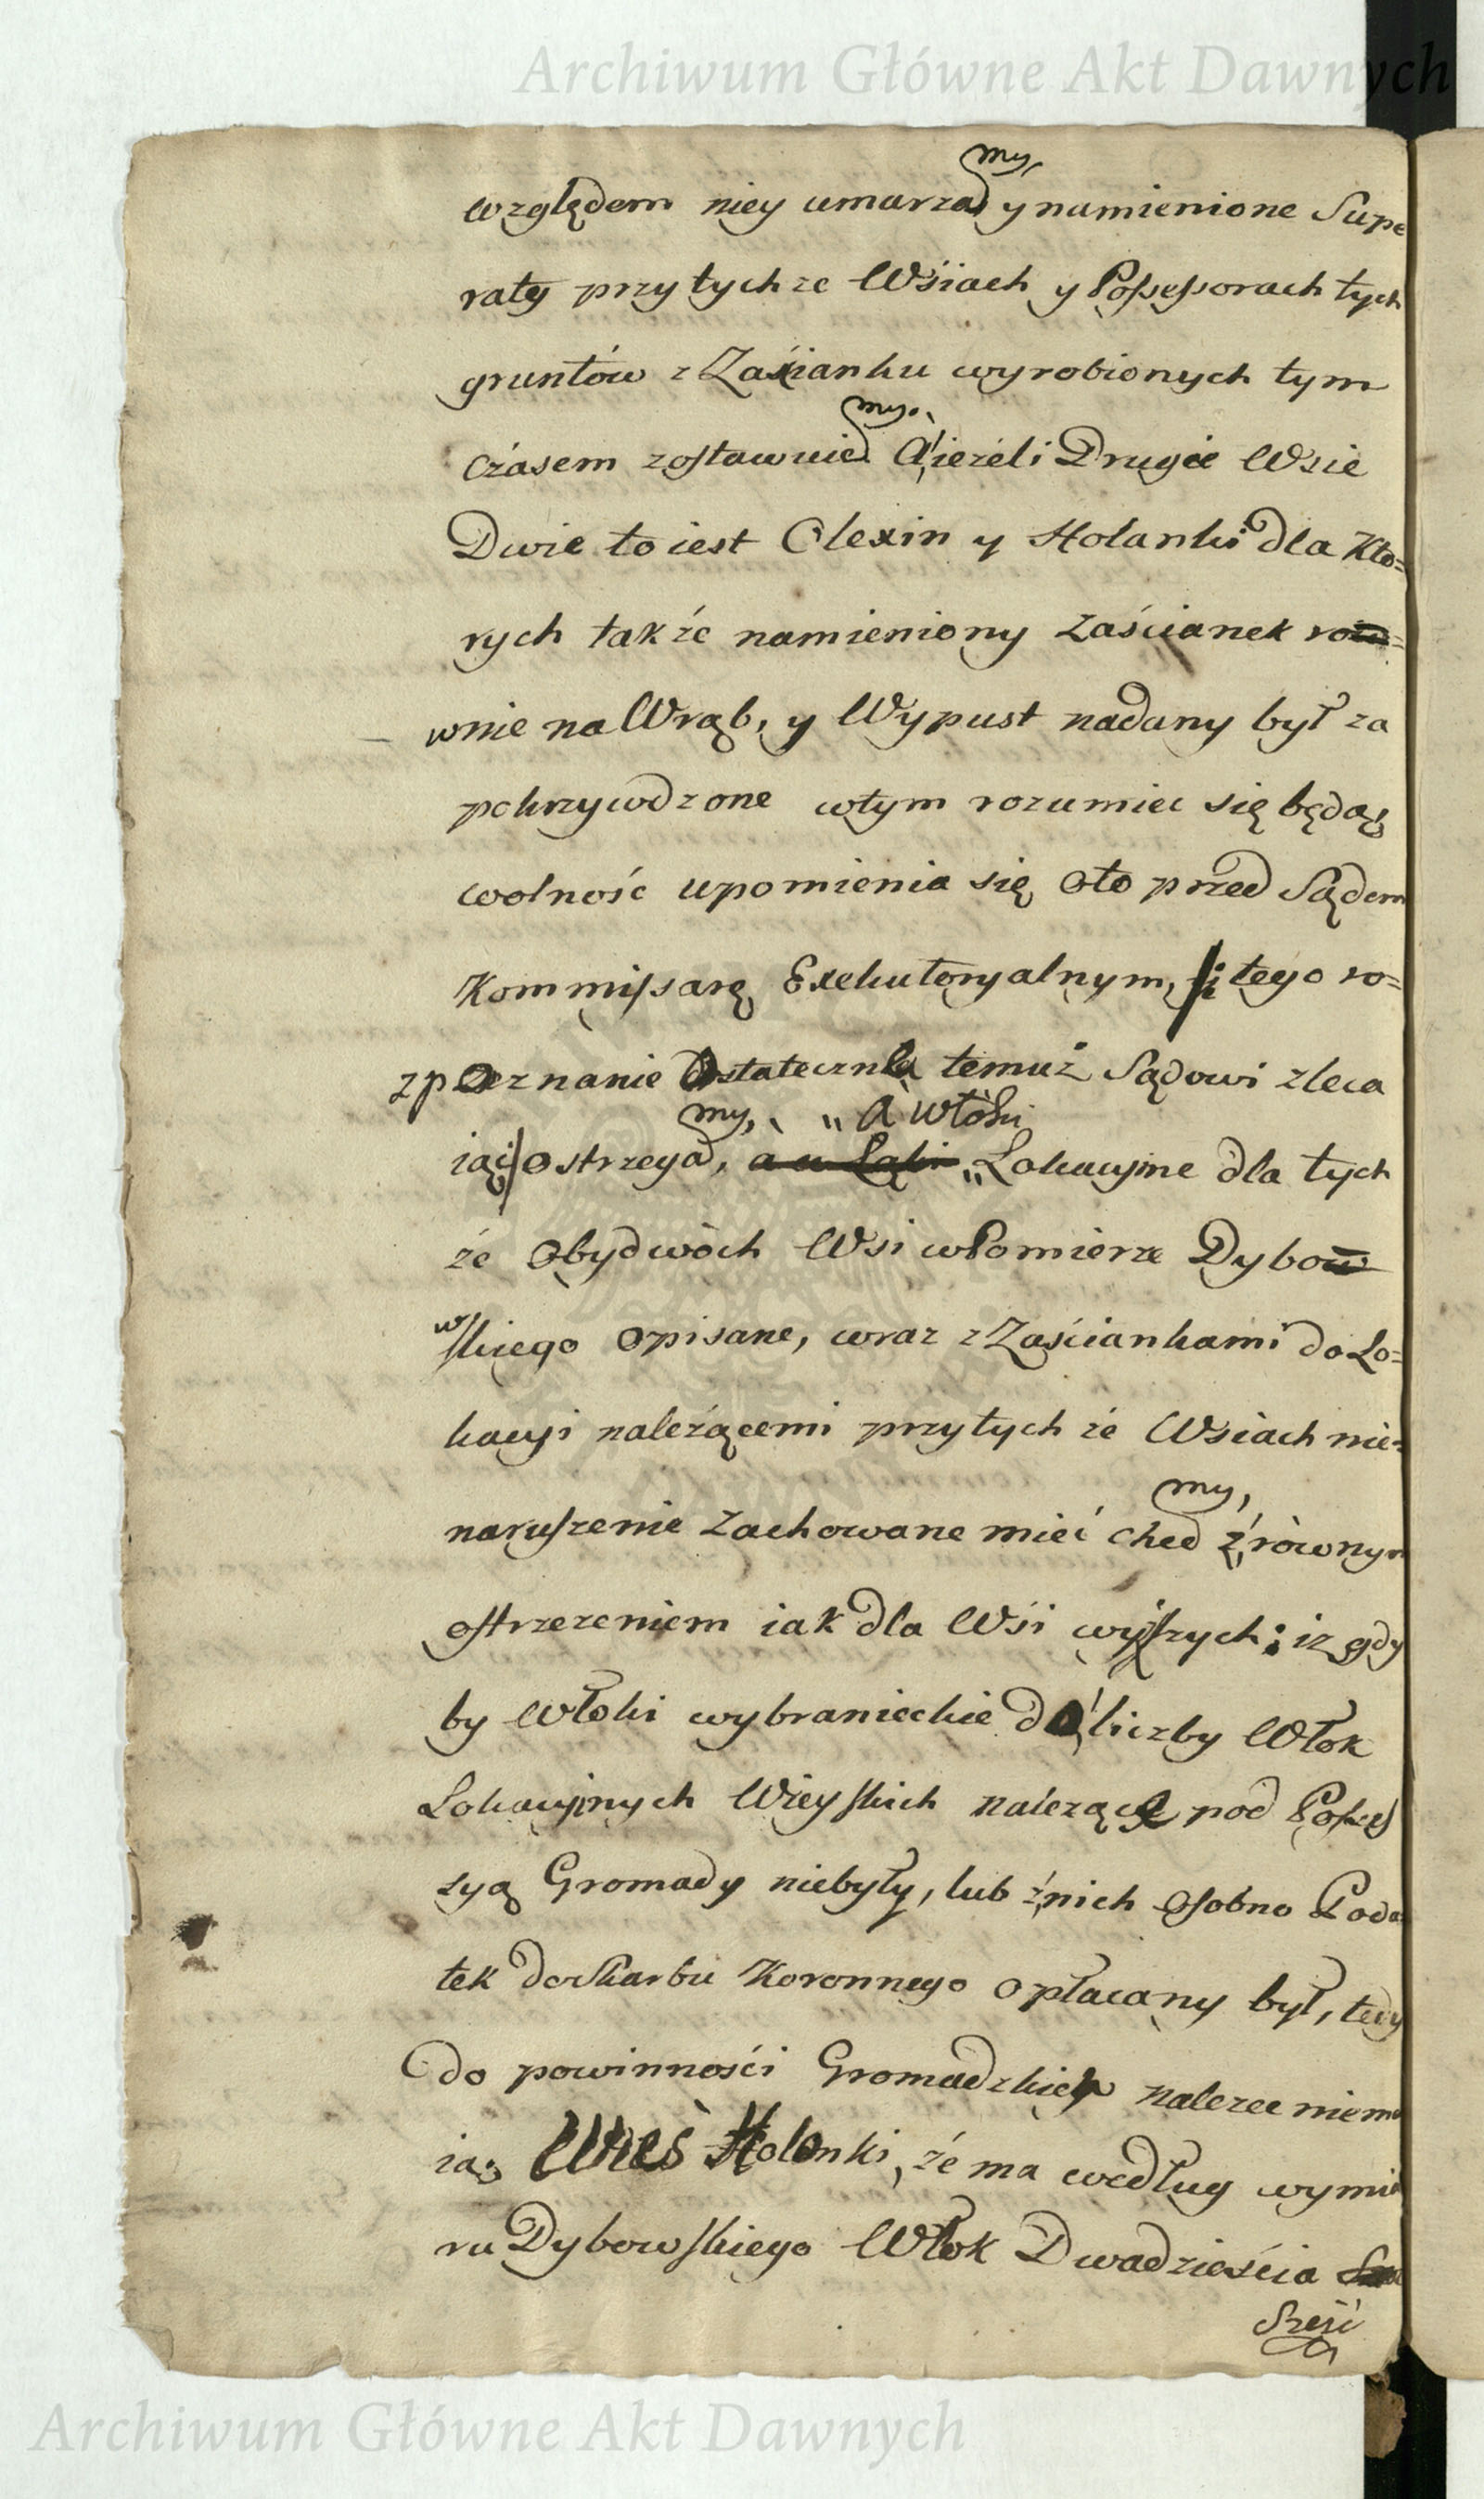 Archiwum Główne Akt Dawnych
względem niey umarzamy, y namienione Supe
raty przy tychże Wsiach y Possessorach tych
gruntów z Zaścianku wyrobionych tym
czasem zostawuiemy. A ieżeli Drugie Wsie
Dwie to iest Olexin y Holanki dla Kto=
rych także namieniony zaścianek row=
wnie na Wrąb, y Wypust nadany był za
pokrzywdzone w tym rozumiec się będą,
wolność upomienia się oto przed Sądem
Kommissarę Exekutoryalnym, i tego ro=
zpoznanie Ostateczne temuż Sądowi zleca
iąc ostrzegamy, a u Łąki „A Włóki„ Lokacyine dla tych
że Obydwóch Wsi w Pomierze Dybow
wskiego opisane, wraz z Zaściankami do Lo=
kacyi należącemi przy tych że Wsiach nie=
naruszenie zachowane mieć chcemy, z równym
ostrzezeniem iak dla Wsi wyższych: iż gdy
by Włoki wybranieckie do liczby Włok
Lokacyinych Wieyskich należące pod Posses
syą Gromady niebyły, lub z nich osobno Poda
tek do Skarbu Koronnego opłacany był, tedy
do powinności Gromadzkiey nalezec niema
ią; Wieś Holonki, że ma według wymia
ru Dybowskiego Włok Dwadzieścia
Sześć
Archiwum Główne Akt Dawnych